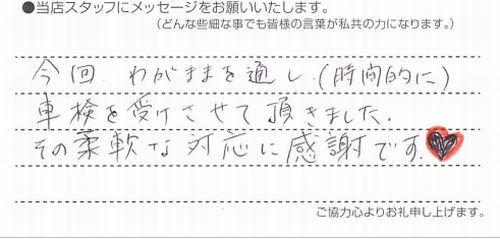 ●当店スタッフにメッセージをお願いいたします。
（どんな些細な事でも皆様の言葉が私共の力になります。）
今回、わがままを通し、(時間的に)
車検を受けさせて頂きました.
その柔軟な対応に感謝です.
ご協力心よりお礼申し上げます。